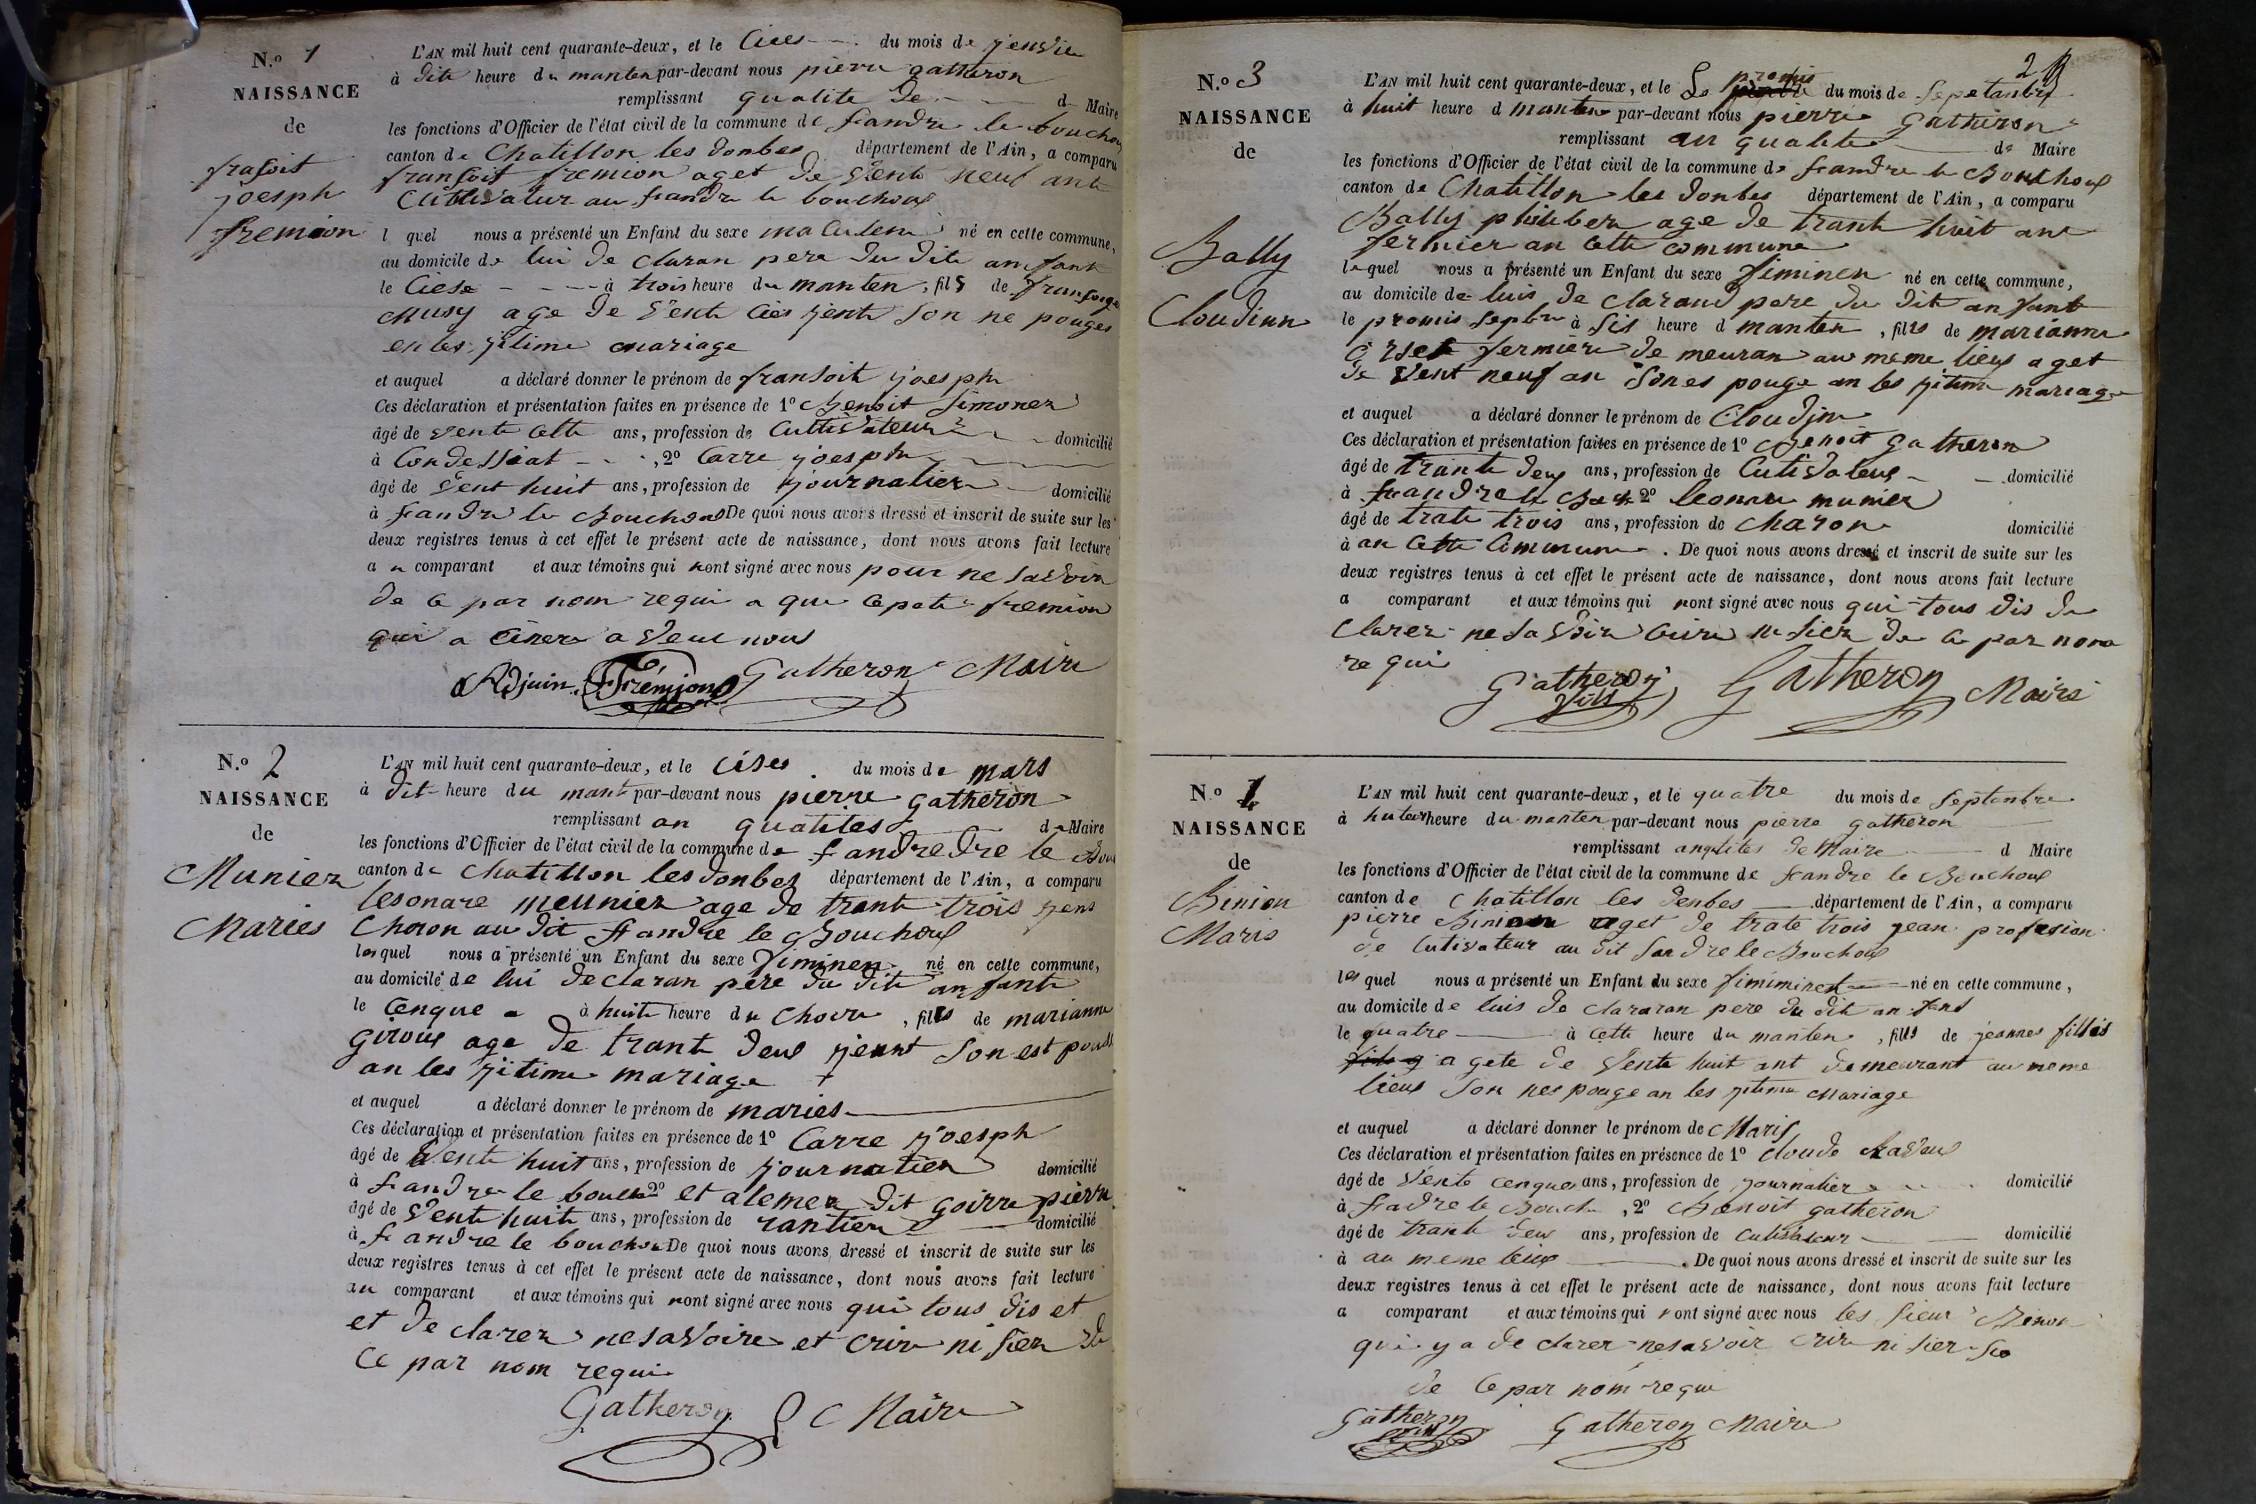 N.o 1
NAISSANCE
de
frasoit
joesph
fremion
L'AN mil huit cent quarante-deux, et le Cies du mois de jenvie
à dite heure du manten par-devant nous pierre gatheron
remplissant qualite de d Maire
les fonctions d'Officier de l'état civil de la commune de fandre le bouchou
canton de Chatillon les donbes département de l'Ain, a comparu
fransoit fremion aget de vente neuf ant
Cultivatur au fandre le bouchous
l quel nous a présenté un Enfant du sexe né en cette commune,
au domicile de lui de claran pere du dite anfant
le Ciese à trois heure du manten, fils de fransoise
Musy age de vente Cies jente son ne pouges
en les jitime mariage
et auquel a déclaré donner le prénom de fransoit joesph
Ces déclaration et présentation faites en présence de 1o Benoit Simonez
âgé de vente cette ans, profession de Cultivateur domicilié
à Condessiat, 2o Carre joesph
âgé de vent huit ans, profession de journalier domicilié
à fandre le Bouchous De quoi nous avons dressé et inscrit de suite sur les
deux registres tenus à cet effet le présent acte de naissance, dont nous avons fait lecture
a u comparant et aux témoins qui nont signé avec nous pour ne savoir
de ce par nom requi a que cepate fremion
qui a a veuc nous
Adjuin Frémion Gatheron Maire
N.o 2
NAISSANCE
de
Munier
Maries
L'AN mil huit cent quarante-deux, et le cises du mois de mars
à dit heure du mant par-devant nous pierre gatheron
remplissant an qualites d Maire
les fonctions d'Officier de l'état civil de la commune de fandredre le Bou
canton de Chatillon les donbes département de l'Ain, a comparu
lesonare meunier age de trante trois jens
Choron au dit fandre le Bouchous
lesquel nous a présenté un Enfant du sexe fiminen né en cette commune,
au domicile de lui declaran père du dite anfante
le cenque à huite heure du Choire, filles de marianne
girous age de trante deus jennt son est pouss
an les jitime mariage
et auquel a déclaré donner le prénom de maries
Ces déclaration et présentation faites en présence de 1o Carre joesph
âgé de vente huit ans, profession de journatier domicilié
à fandre le bouch 2o et alemen dit goirre pierre
âgé de vente huite ans, profession de rantier domicilié
à fandre le bouchou De quoi nous avons dressé et inscrit de suite sur les
deux registres tenus à cet effet le présent acte de naissance, dont nous avons fait lecture
au comparant et aux témoins qui nont signé avec nous qui tous dis et
et de clarer ne savoire et crire ni sier de
ce par nom requi
Gatheron Maire
2
N.o 3
NAISSANCE
de
Bally
Cloudinn
L'AN mil huit cent quarante-deux, et le Le promis du mois de Sepetanbre
à huit heure d manten par-devant nous pierre Gatheron
remplissant an qualite de Maire
les fonctions d'Officier de l'état civil de la commune de fandre le Bouchous
canton de Chatillon les donbes département de l'Ain, a comparu
Bally philiber age de trante huit ans
fermier an cette commune
lequel nous a présenté un Enfant du sexe fiminen né en cette commune,
au domicile de luis de claraud pere du dit anfante
le promis Septbre à sis heure d manten, filles de marianne
fermiere de meuran au meme lieus aget
de vent neuf an son es pouge an les jitime mariage
et auquel a déclaré donner le prénom de Cloudjne
Ces déclaration et présentation faites en présence de 1o Benoit gatheron
âgé de trante deus ans, profession de Cutivateur domicilié
à fandre le Bouch 2o leonare munier
âgé de trate trois ans, profession de Charon domicilié
à an Cette Commune. De quoi nous avons dressé et inscrit de suite sur les
deux registres tenus à cet effet le présent acte de naissance, dont nous avons fait lecture
a comparant et aux témoins qui nont signé avec nous qui tous dis de
clarer ne savoir Crire ni sier de ce par nom
re qui
Gatheron fils Gatheron Maire
N.o
NAISSANCE
de
Binion
Maris
L'AN mil huit cent quarante-deux, et le quatre du mois de Septenbre
à heure du manten par-devant nous pierre gatheron
remplissant anqlites de Maire d Maire
les fonctions d'Officier de l'état civil de la commune de fandre le Bouchous
canton de Chatillon les denbes département de l'Ain, a comparu
pierre Binion aget de trate trois jean profesion
de Cutivateur au dit fandre le Bouchous
lesquel nous a présenté un Enfant du sexe fimiminen né en cette commune,
au domicile de luis de clararan pere du dit anfens
le quatre à cette heure du manten, filles de jeannes filles
a gete de vente huit ant demeurant au meme
lieus son nes pouge an les jitime Mariage
et auquel a déclaré donner le prénom de Maris
Ces déclaration et présentation faites en présence de 1o cloude
âgé de vente cenque ans, profession de journalier domicilié
à fadre le Bouch, 2o Benoit gatheron
âgé de trante deus ans, profession de cutivateur domicilié
à au meme leius. De quoi nous avons dressé et inscrit de suite sur les
deux registres tenus à cet effet le présent acte de naissance, dont nous avons fait lecture
a comparant et aux témoins qui nont signé avec nous les sieur Binon
qui y a de clarer ne savoir crire ni sier
de ce par nom requi
Gatheron fils Gatheron Maire